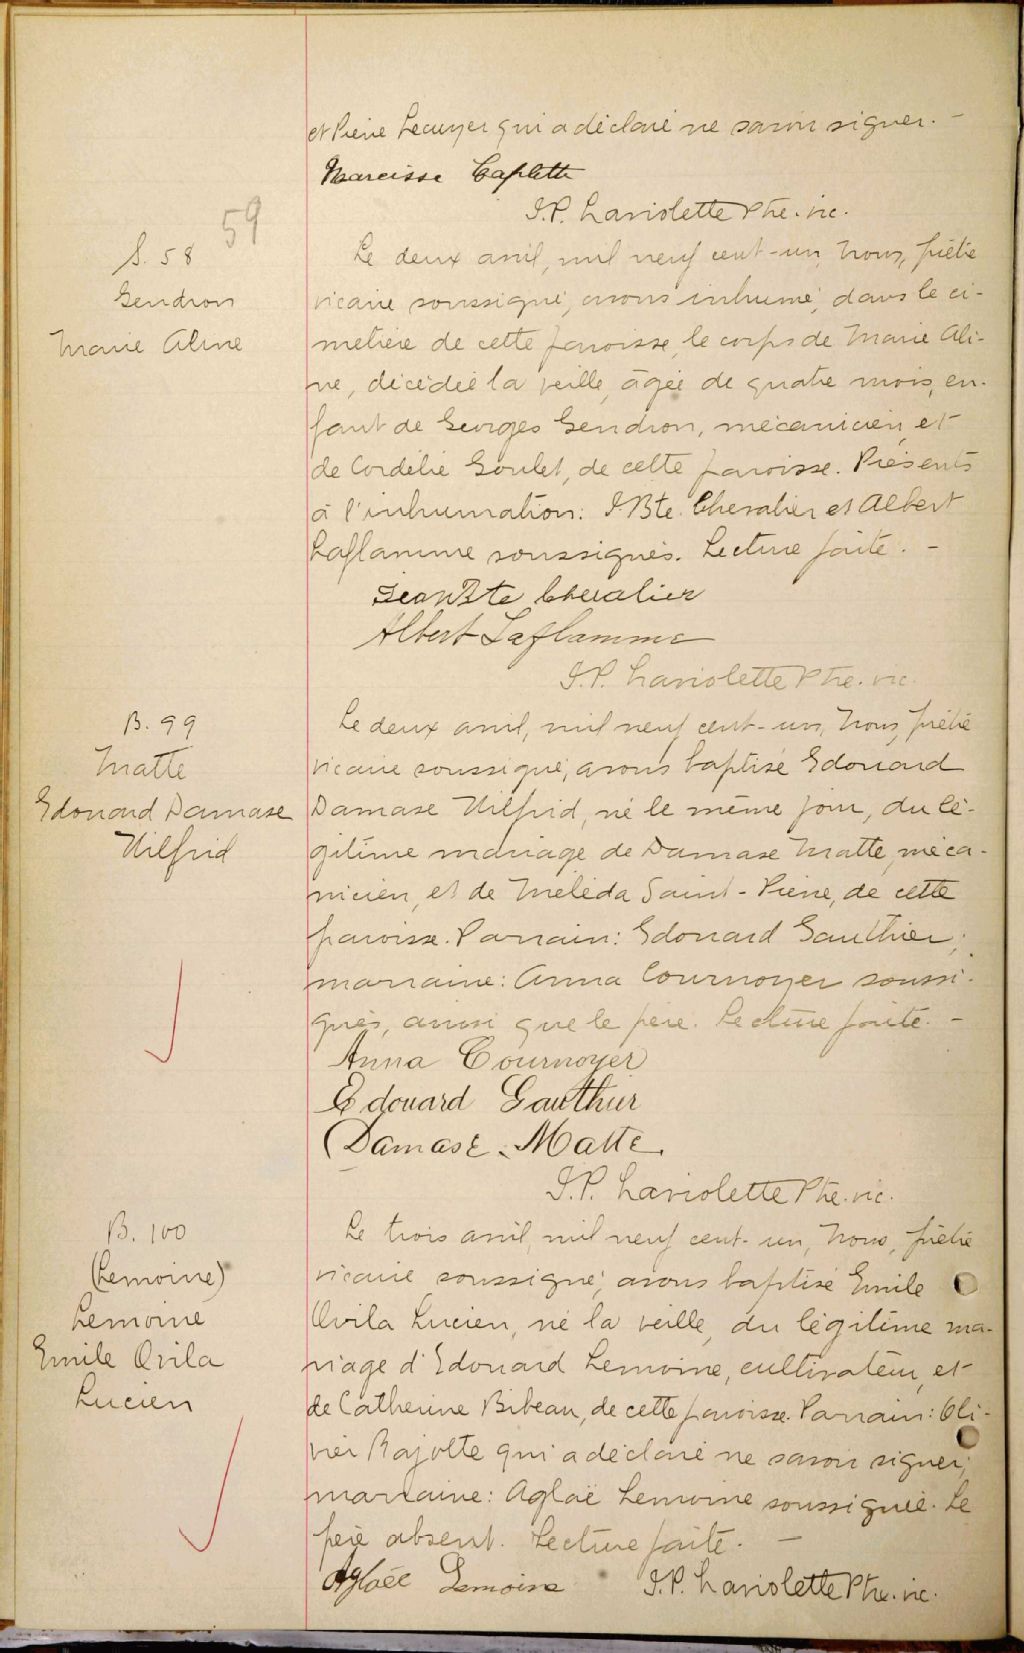 et Pierre Lecuyer qui a déclaré ne savoir signer. -
Narcisse Caplette
J.P. Laviolette Ptre. vic.
59
S. 58
Gendron
Marie Aline
Le deux avril, mil neuf cent-un, Nous, prêtre
vicaire soussigné, avons inhumé, dans le ci-
metière de cette paroisse, le corps de Marie Ali-
ne, décédée la veille, âgée de quatre mois, en-
fant de Georges Gendron, mécanicien, et
de Cordélie Goulet, de cette paroisse. Présents
à l'inhumation: J.Bte. Chevalier et Albert
Laflamme soussignés. Lecture faite. -
Jean Bte Chevalier
Albert Laflamme
J.P. Laviolette Ptre. vic.
B. 99
Matte
Edouard Damase
Wilfrid
Le deux avril, mil neuf cent-un, Nous, prêtre
vicaire soussigné, avons baptisé Edouard
Damase Wilfrid, né le même jour, du lé-
gitime mariage de Damase Matte, méca-
nicien, et de Méléda Saint-Pierre, de cette
paroisse. Parrain: Edouard Gauthier;
marraine: Anna Cournoyer soussi-
gnés, ainsi que le père. Lecture faite. -
Anna Cournoyer
Edouard Gauthier
Damase Matte
J.P. Laviolette Ptre. vic.
B. 100
(Lemoine)
Lemoine
Emile Ovila
Lucien
Le trois avril, mil neuf cent-un, Nous, prêtre
vicaire soussigné, avons baptisé Emile
Ovila Lucien, né la veille, du légitime ma-
riage d'Edouard Lemoine, cultivateur, et
de Catherine Bibeau, de cette paroisse. Parrain: Oli-
vier Rajotte qui a déclaré ne savoir signer;
marraine: Aglaë Lemoine soussignée. Le
père absent. Lecture faite. -
Aglaée Lemoine J.P. Laviolette Ptre. vic.